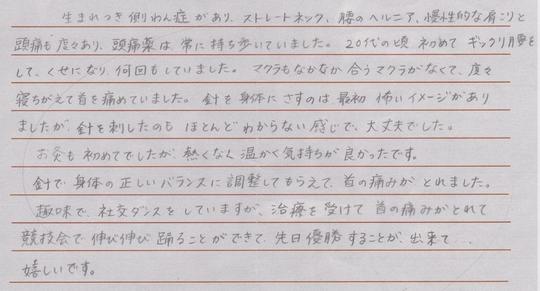 生まれつき側わん症があり、ストレートネック、腰のヘルニア、慢性的な肩こりと
頭痛も度々あり、頭痛薬は、常に持ち歩いていました。20代の頃 初めて ギックリ腰を
して、くせになり、何回もしていました。マクラもなかなか合うマクラがなくて、度々
寝ちがえて首を痛めていました。針を身体にさすのは最初 怖いイメージがあり
ましたが、針を刺したのも ほとんどわからない感じで、大丈夫でした。
お灸も初めてでしたが、熱くなく温かく気持ちが良かったです。
針で身体の正しいバランスに調整してもらえて、首の痛みが とれました。
趣味で、社交ダンスをしていますが、治療を受けて 首の痛みがとれて
競技会で伸び伸び踊ることができて、先日優勝することが、出来て...
嬉しいです。